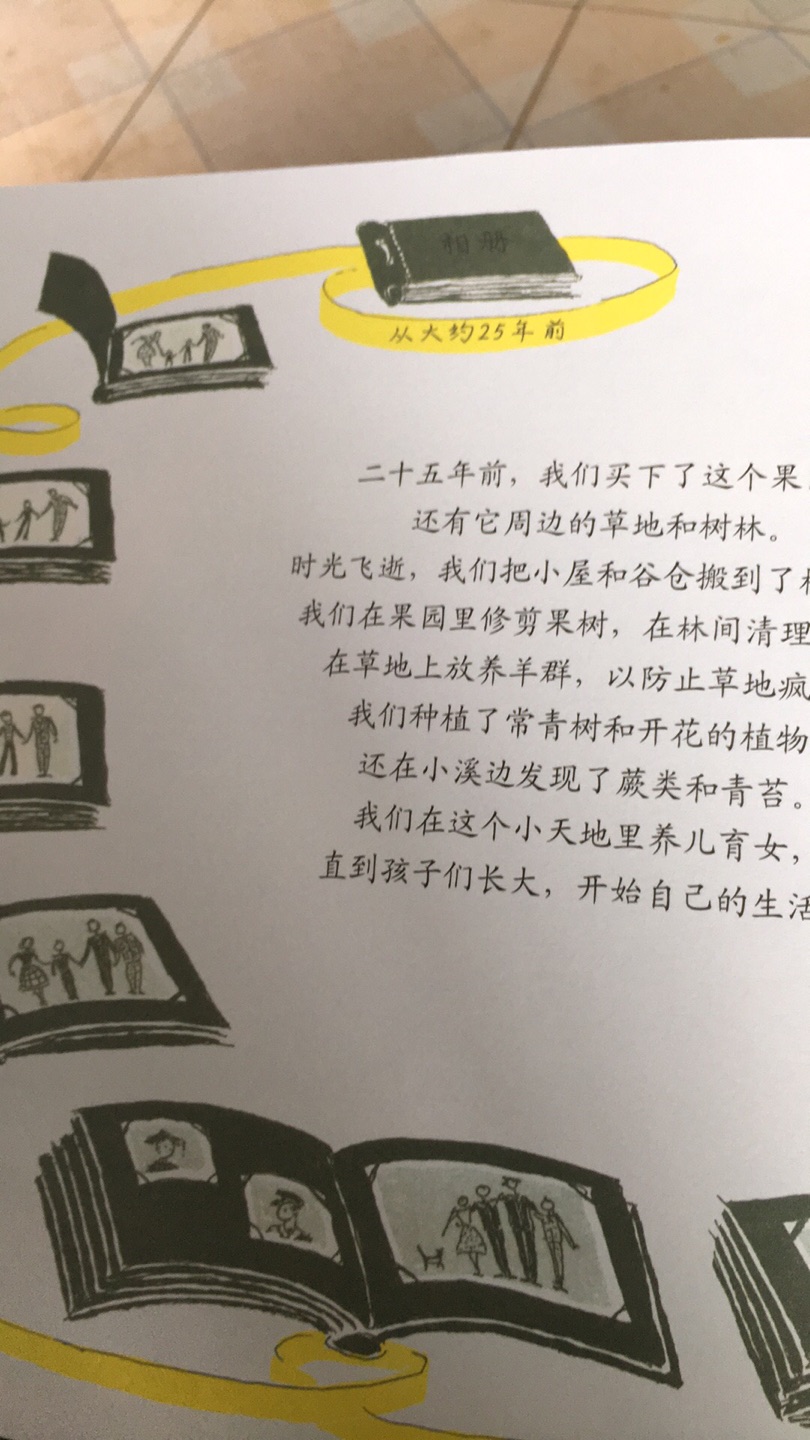 相册
从大约25年前
二十五年前，我们买下了这个果
还有它周边的草地和树林。
时光飞逝，我们把小屋和谷仓搬到了
我们在果园里修剪果树，在林间清理
在草地上放养羊群，以防止草地疯
我们种植了常青树和开花的植物
还在小溪边发现了蕨类和青苔。
我们在这个小天地里养儿育女，
直到孩子们长大，开始自己的生活